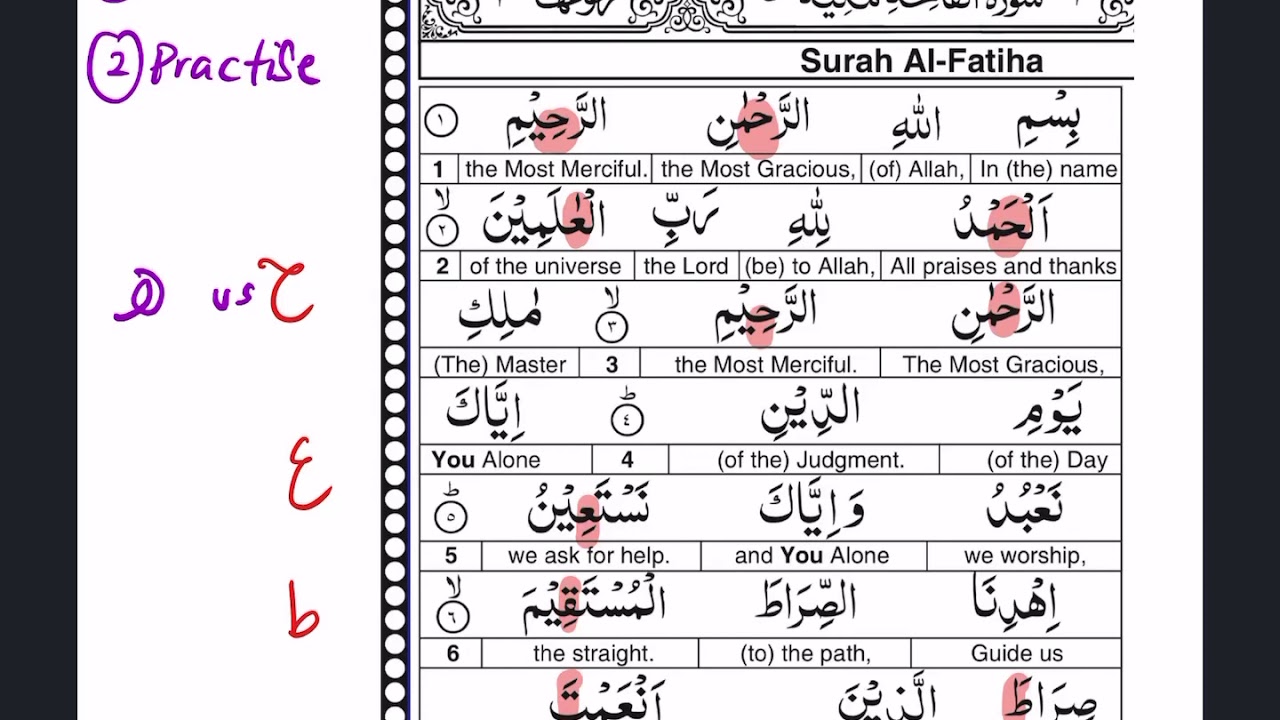 ② Practise
Surah Al-Fatiha
بِسْمِ اللّٰهِ الرَّحْمٰنِ الرَّحِيْمِ ١
In (the) name (of) Allah, the Most Gracious, the Most Merciful. 1
اَلْحَمْدُ لِلّٰهِ رَبِّ الْعٰلَمِيْنَ ۙ ٢
All praises and thanks (be) to Allah, the Lord of the universe 2
ه vs ح
الرَّحْمٰنِ الرَّحِيْمِ ۙ ٣ مٰلِكِ
The Most Gracious, the Most Merciful. 3 (The) Master
يَوْمِ الدِّيْنِ ؕ ٤ اِيَّاكَ
(of the) Day (of the) Judgment. 4 You Alone
ع
نَعْبُدُ وَاِيَّاكَ نَسْتَعِيْنُ ؕ ٥
we worship, and You Alone we ask for help. 5
اِهْدِنَا الصِّرَاطَ الْمُسْتَقِيْمَ ۙ ٦
ط
Guide us (to) the path, the straight. 6
صِرَاطَ الَّذِيْنَ اَنْعَمْتَ